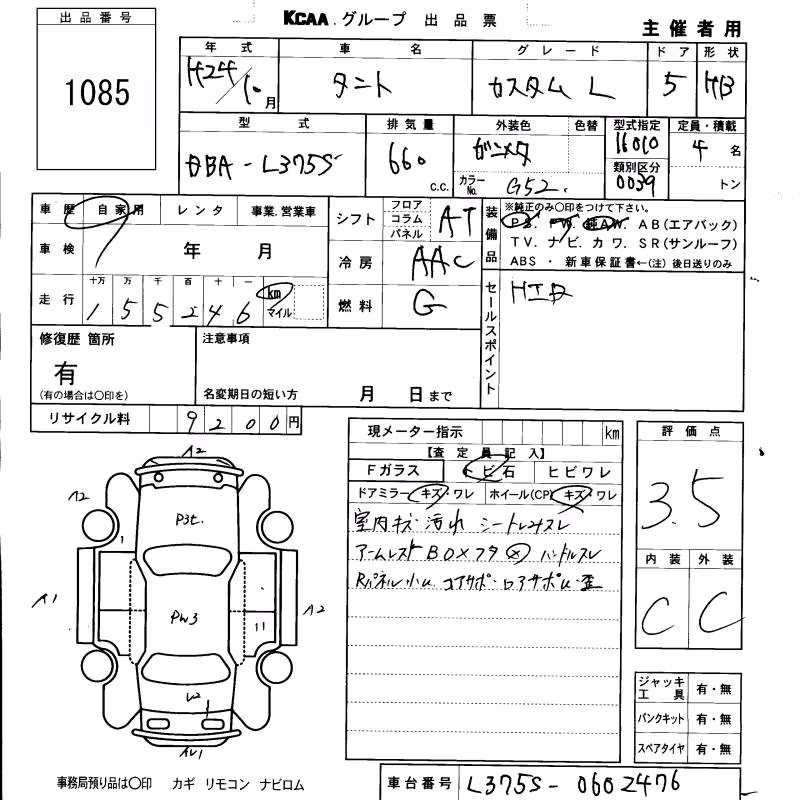 出品番号
1085
KCAA グループ 出品票
主催者用
年式 車名 グレード ドア 形状
H24/10月 タント カスタム L 5 HB
型式 排気量 外装色 色替 型式指定 定員・積載
DBA-L375S 660 c.c. ガンメタ 16010 4名
カラーNo. G52. 類別区分 0039 トン
車歴 自家用 レンタ 事業.営業車
車検 年 月
走行 十万 万 千 百 十 一
1 5 5 2 4 6 km マイル
シフト フロア コラム パネル AT
冷房 AAC
燃料 G
装備品
※純正のみ○印をつけて下さい。
P.S. P.W. 純A.W. AB(エアバック)
TV. ナビ. カワ. SR(サンルーフ)
ABS ・ 新車保証書←(注) 後日送りのみ
セールスポイント
HID
修復歴 箇所
有
(有の場合は○印を)
注意事項
名変期日の短い方 月 日まで
リサイクル料 9200円
現メーター指示 km
【査定員記入】
Fガラス トビ石 ヒビワレ
ドアミラー キズ・ワレ ホイール(CP) キズ・ワレ
室内キズ・汚れ シートしみスレ
アームレストBOXフタ ハンドルスレ
コアサポ・ロアサポ
評価点
3.5
内装 外装
C C
ジャッキ工具 有・無
パンクキット 有・無
スペアタイヤ 有・無
A2
A2
A2
P3t.
1
A1
PW3
A2
11
U2
事務局預り品は○印 カギ リモコン ナビロム
車台番号 L375S-0602476